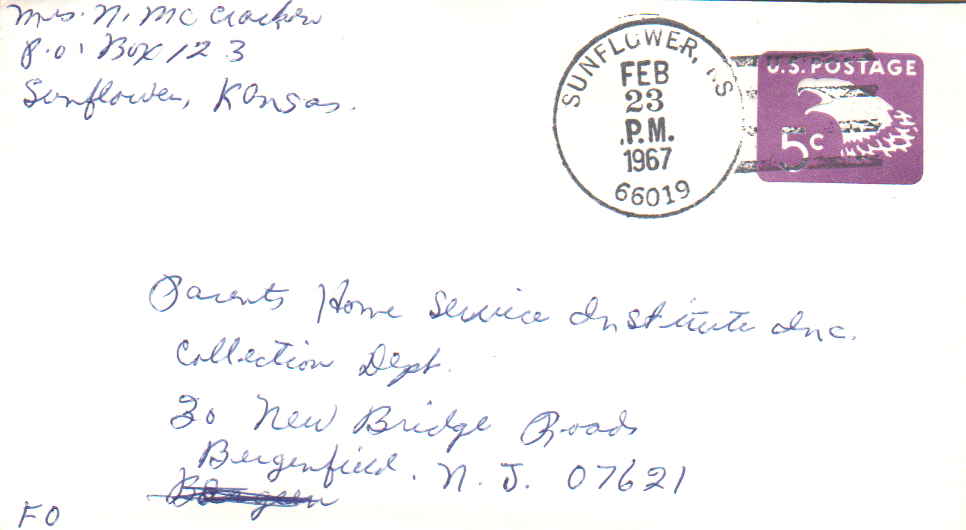 Mrs. N. McCracken
P.O. Box 123
Sunflower, Kansas.
SUNFLOWER, KS
FEB
23
P.M.
1967
66019
U.S. POSTAGE
5c
Parents Home Service Institute Inc.
Collection Dept.
20 New Bridge Road
Bergenfield, N.J. 07621
FO